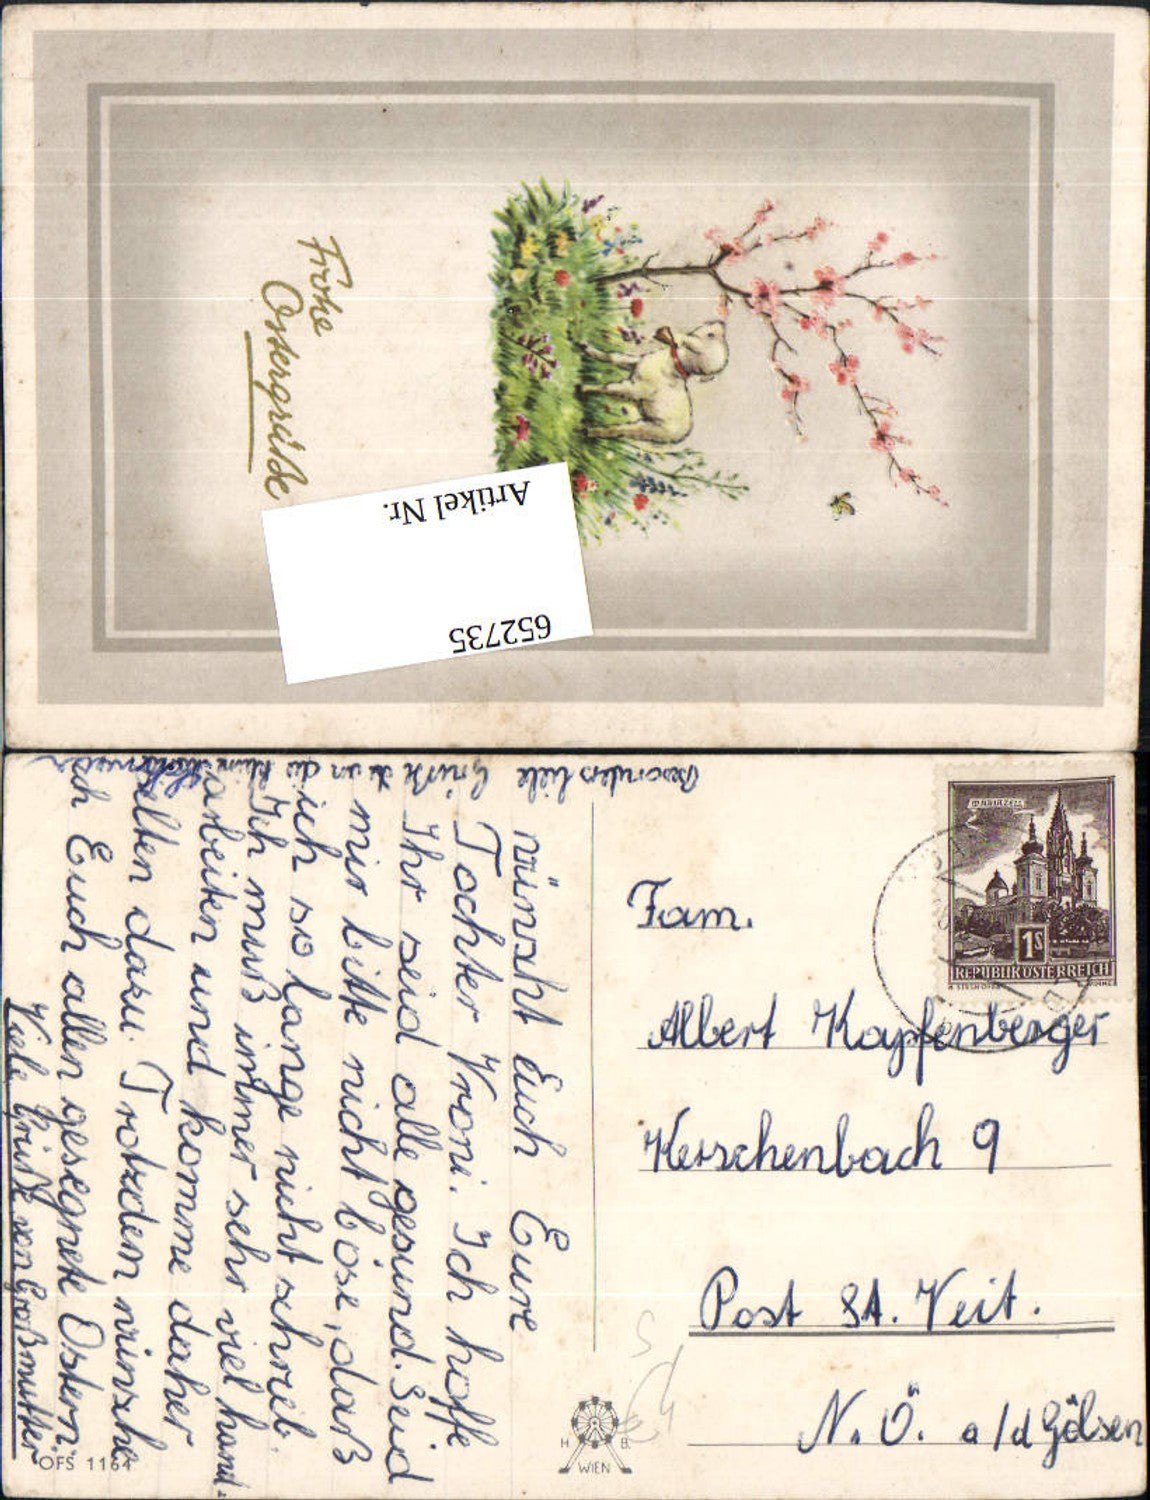 Frohe
Ostergrüße
Artikel Nr.
652735
MARIAZELL
1S
REPUBLIK ÖSTERREICH
Fam.
Albert Kapfenberger
Kerschenbach 9
Post St. Veit.
N.Ö. a/d Gölsen
wünscht Euch Eure
Tochter Vroni. Ich hoffe
Ihr seid alle gesund. Seid
mir bitte nicht böse, daß
ich so lange nicht schrieb.
Ich muß immer sehr viel hand-
arbeiten und komme daher
selten dazu. Trotzdem wünsche
ich Euch allen gesegnete Ostern.
Viele Grüße von Großmutter
Besonders liebe Grüße an die kleine
H. B.
WIEN
OFS 1164